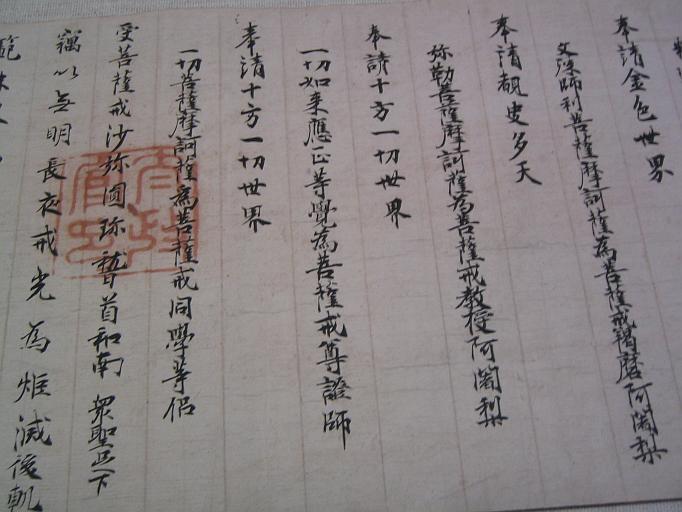 奉請金色世界
文殊師利菩薩摩訶薩為菩薩戒羯磨阿闍梨
奉請覩史多天
弥勒菩薩摩訶薩為菩薩戒教授阿闍梨
奉請十方一切世界
一切如来應正等覺為菩薩戒尊證師
奉請十方一切世界
一切菩薩摩訶薩為菩薩戒同學等侶
受菩薩戒沙弥圓珎稽首和南 衆聖足下
竊以無明長夜戒光為炬滅後軌
範